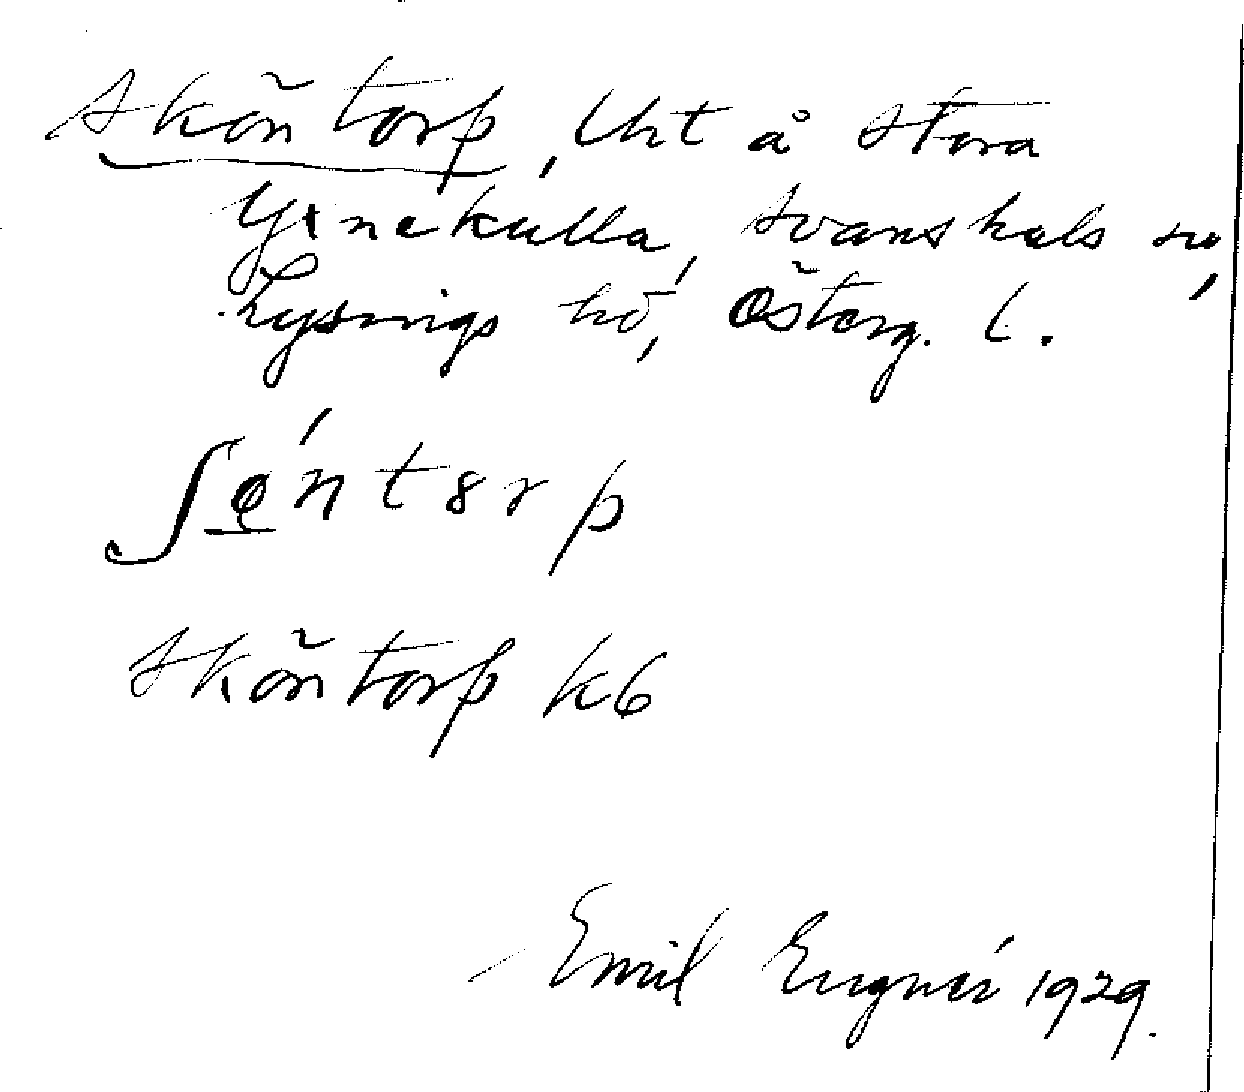 Sköntorp, Uht å Stora
Yxnekulla, Svanshals sn,
Lysings hd, Österg. l.
Sköntorp k6
Emil Eugnér 1929.